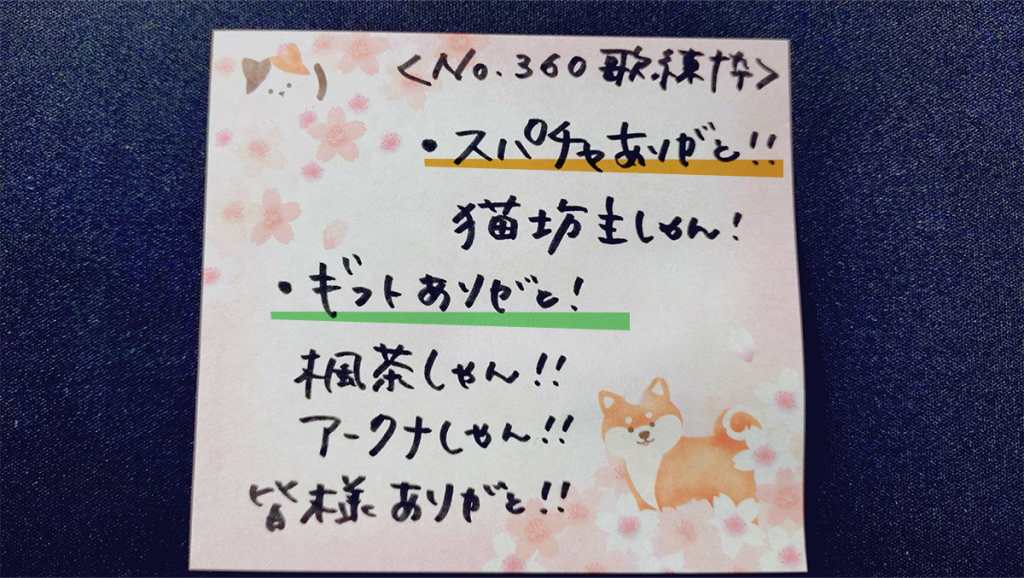 <No.360 歌練枠>
・スパチャありがと!!
猫坊主しゃん!
・ギフトありがと!
楓茶しゃん!!
アークナしゃん!!
皆様ありがと!!